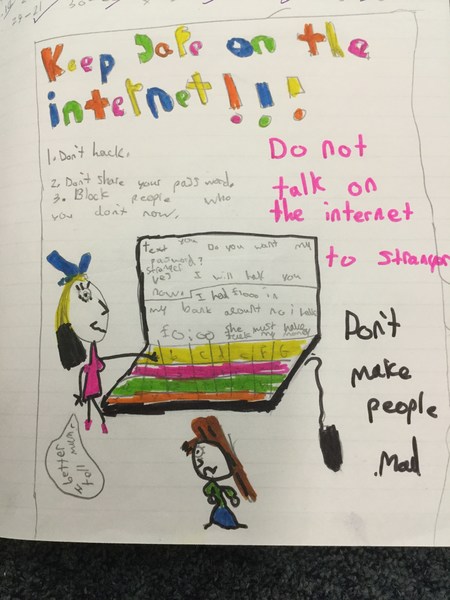 Keep Safe on the
internet!!!
1. Don't hack.
2. Don't share your password.
3. Block people who
you don't now.
Do not
talk on
the internet
to stranger
text you Do you want my
password?
stranger
yes I will hak you
now. I had £1000 in
my bank acount no i have
£0;00 she must have
teck my money
Don't
make
people
.Mad
better
tell mum